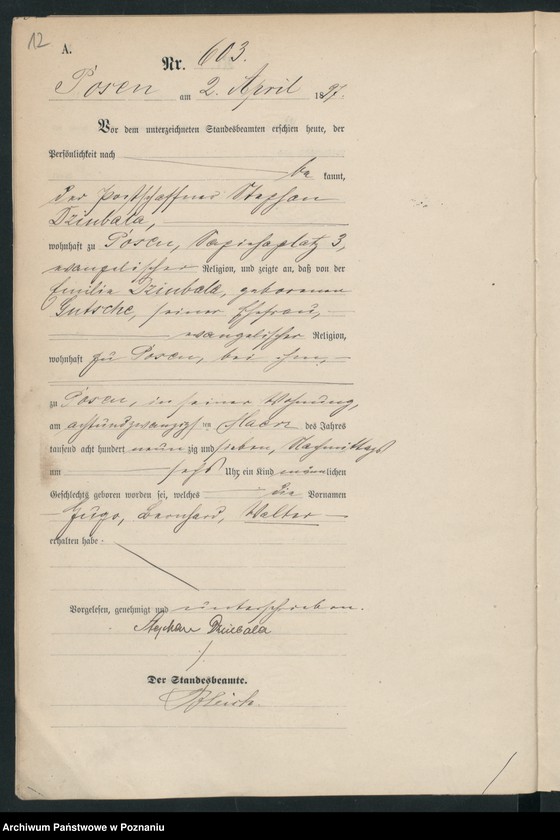 12
A.
Nr. 603.
Posen am 2. April 1897.
Vor dem unterzeichneten Standesbeamten erschien heute, der
Persönlichkeit nach
be kannt,
der Postschaffner Stephan
Dziubala,
wohnhaft zu Posen, Sapiehaplatz 3,
evangelischer Religion, und zeigte an, daß von der
Emilie Dziubala, geborenen
Gutsche, seiner Ehefrau,
evangelischer Religion,
wohnhaft zu Posen, bei ihm,
zu Posen, in seiner Wohnung,
am achtundzwanzigsten März des Jahres
tausend acht hundert neunzig und sieben, Nachmittags
um sechs Uhr ein Kind männlichen
Geschlechts geboren worden sei, welches die Vornamen
Hugo, Bernhard, Walter
erhalten habe.
Vorgelesen, genehmigt und unterschrieben.
Stephan Dziubala
Der Standesbeamte.
Archiwum Państwowe w Poznaniu